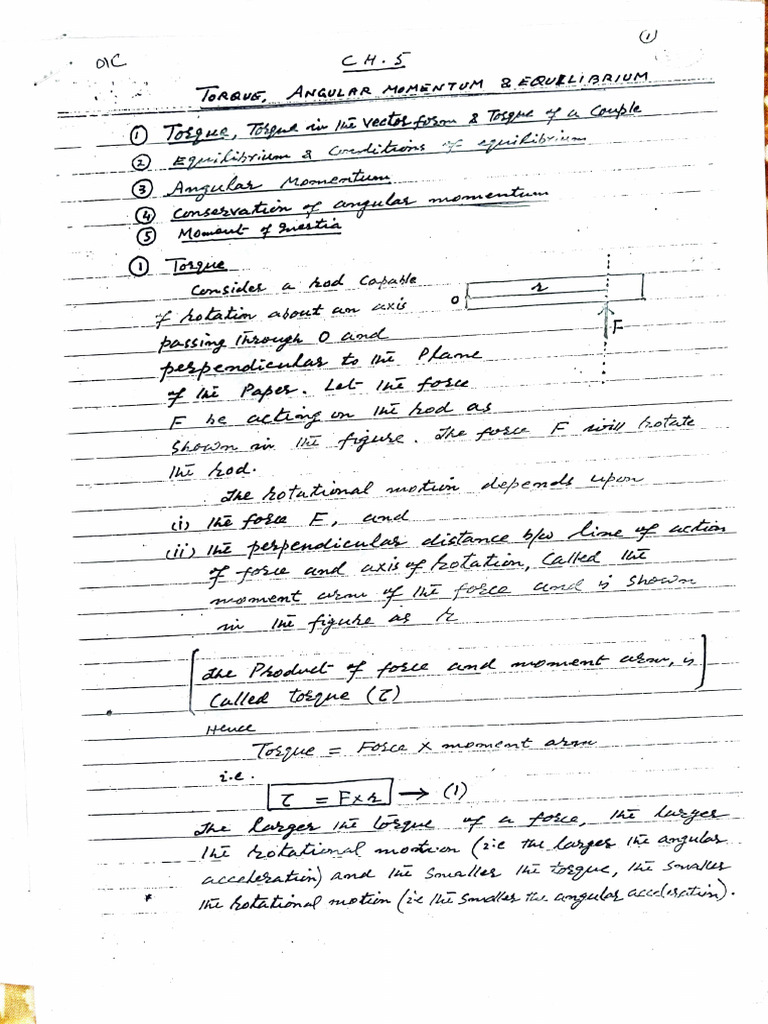 ①
OIC
CH. 5
TORQUE, ANGULAR MOMENTUM & EQUILIBRIUM
① Torque, Torque in the vector form & Torque of a Couple
② Equilibrium & Conditions of equilibrium
③ Angular Momentum
④ Conservation of angular momentum
⑤ Moment of Inertia
① Torque
Consider a rod Capable
of rotation about an axis
passing through O and
perpendicular to the Plane
of the Paper. Let the force
F be acting on the rod as
shown in the figure. The force F will rotate
the rod.
O
r
F
The rotational motion depends upon
(i) the force F, and
(ii) the perpendicular distance b/w line of action
of force and axis of rotation, Called the
moment arm of the force and is shown
in the figure as r
[The Product of force and moment arm, is
Called torque (τ)]
Hence
Torque = Force × moment arm
i.e.
τ = F×r → (1)
The larger the torque of a force, the larger
the rotational motion (i.e the larger the angular
acceleration) and the smaller the torque, the smaller
* the rotational motion (i.e the smaller the angular acceleration).